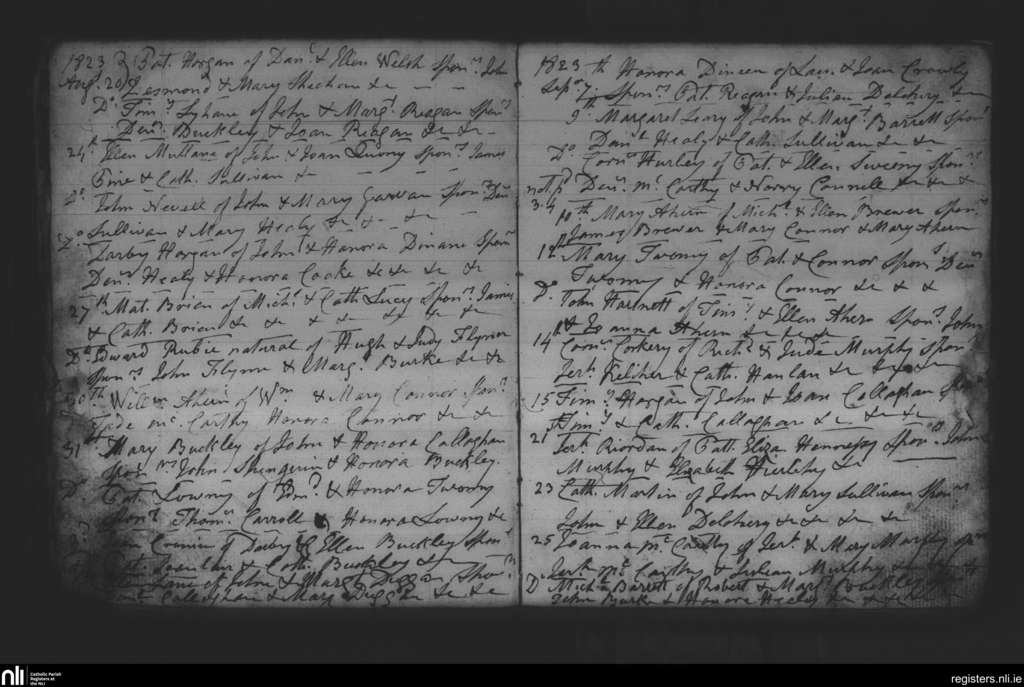 1823 Pat. Horgan of Danl & Ellen Welsh Sponrs John
Augt 20th Desmond & Mary Sheehan &c
Do Timy Lyhane of John & Margt Reagan Sponrs
Denis Buckley & Joan Reagan &c &c
24th Ellen Mullane of John & Joan Sponrs James
& Cath. Sullivan &c
Do John Nevell of John & Mary Sponrs Denis
Sullivan & Mary Healy &c &c &c
Do Darby Horgan of John & Honora Dinane Sponrs
Denis Healy & Honora Cooke &c &c &c &c
27th Mat. Brien of Michl & Cath Lucy Sponrs James
& Cath. Brien &c &c & &c &c &c &c
Do Edward Rubie natural of Hugh & Judy Flynn
Sponrs John Flynn & Marg. Burke &c &c
30th Willm Ahern of Wm & Mary Connor Sponrs
Mc Carthy Honora Connor &c &c
31st Mary Buckley of John & Honora Callaghan
Sponrs John & Honora Buckley
Do Pat. of Edmd & Honora Twomy
Sponrs Thoms Carroll & Honora &c
of Darby & Ellen Buckley Sponrs
& Cath. Buckley &c
of John & Sponrs
Callaghan & Mary &c &c
1823 th Honora Dineen of & Joan Crowly
Sepr 7 Sponrs Pat. Reagan & Julian Delohery &c
9th Margaret Leary of John & Margt Barrett Sponrs
Danl Healy & Cath. Sullivan &c &c
Do Corns Hurley of Pat. & Ellen Sweeny Sponrs
not pd Denis Mc Carthy & Norry Connell &c &c &c
3.4
10th Mary Ahern of Michl & Ellen Brewer Sponrs
James Brewer & Mary Connor & Mary Ahern
12th Mary Twomy of Pat. & Connor Sponrs Denis
Twomy & Honora Connor &c & &
Do John Hartnett of Timy & Ellen Ahern Sponrs John
& Joanna Ahern &c &c &c
14th Corns Corkery of Richd & Jude Murphy Sponrs
Jerh Kelliher & Cath. Hanlan &c &c &c
15 Timy Horgan of John & Joan Callaghan Sponrs
Timy & Cath. Callaghan &c &c &c
21st Jerh Riordan of Patt. Eliza Hennessy Sponrs John
Murphy & Elizabeth Hurley &c
23 Cath. Martin of John & Mary Sullivan Sponrs
John & Ellen Delohery &c &c &c &c
25 Joanna Mc Carthy of Jerh & Mary Murphy Sponrs
Jerh Mc Carthy & Julian Murphy &c
Do Michl Barrett of Robert & Margt Buckley
John Burke & Honora Healy &c &c &c
nli
Catholic Parish
Registers at
the NLI
registers.nli.ie